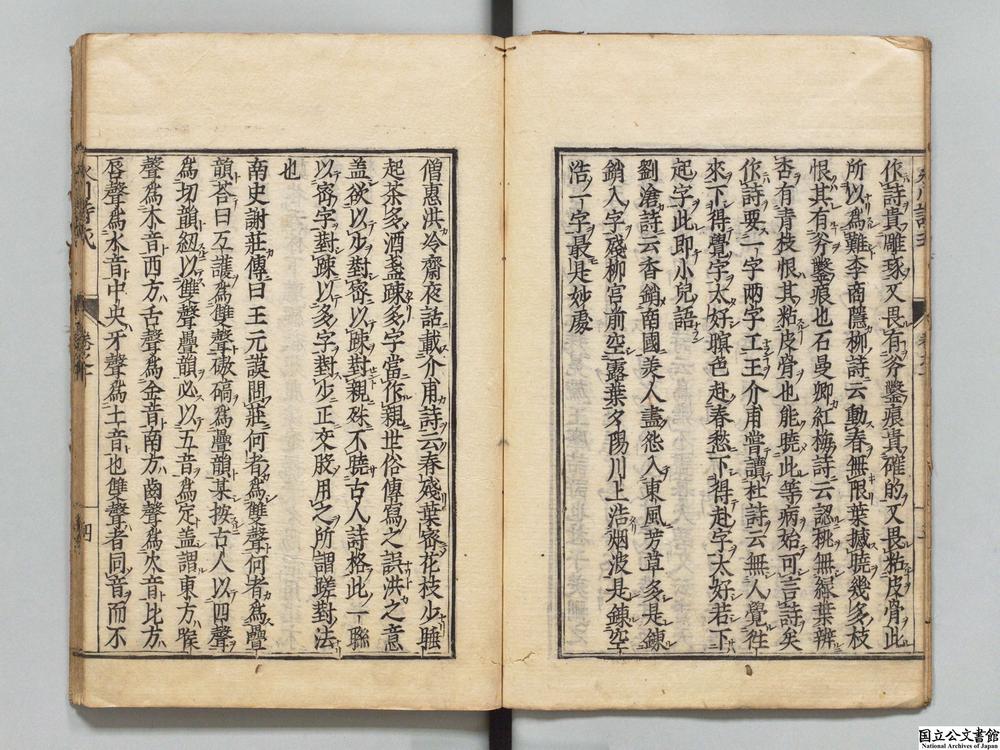 作詩貴雕琢又畏有斧鑿痕貴確的又畏粘皮骨此
所以爲難李商隱柳詩云動春無限葉撼曉幾多枝
恨其有斧鑿痕也石曼卿紅梅詩云認桃無綠葉辨
杏有青枝恨其粘皮骨也能曉此等病始可言詩矣
作詩要一字兩字工王介甫嘗讀杜詩云無人覺往
來下得覺字太好瞑色赴春愁下得赴字太好若下
起字此即小兒語
劉滄詩云香銷南國美人盡怨入東風芳草多是錬
銷入字殘柳宮前空露葉夕陽川上浩烟波是錬空
浩一字最是妙處
僧惠洪冷齋夜話載介甫詩云春殘葉密花枝少睡
起茶多酒盞踈多字當作親世俗傳寫之誤洪之意
盖欲以少對密以踈對親殊不曉古人詩格此一聯
以密字對踈以多字對少正交股用之所謂蹉對法
也
南史謝莊傳曰王元謨問莊何者爲雙聲何者爲疊
韻荅曰互護爲雙聲磝碻爲疊韻某按古人以四聲
爲切韻紐以雙聲疊韻必以五音爲定盖謂東方喉
聲爲木音西方舌聲爲金音南方齒聲爲火音北方
唇聲爲水音中央牙聲爲土音也雙聲者同音而不
四
国立公文書館
National Archives of Japan